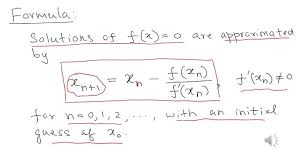 Formula:
Solutions of f(x)=0 are approximated
by
x_{n+1} = x_n - f(x_n)/f'(x_n), f'(x_n) ≠ 0
for n=0,1,2, ..., with an initial
guess of x_0.